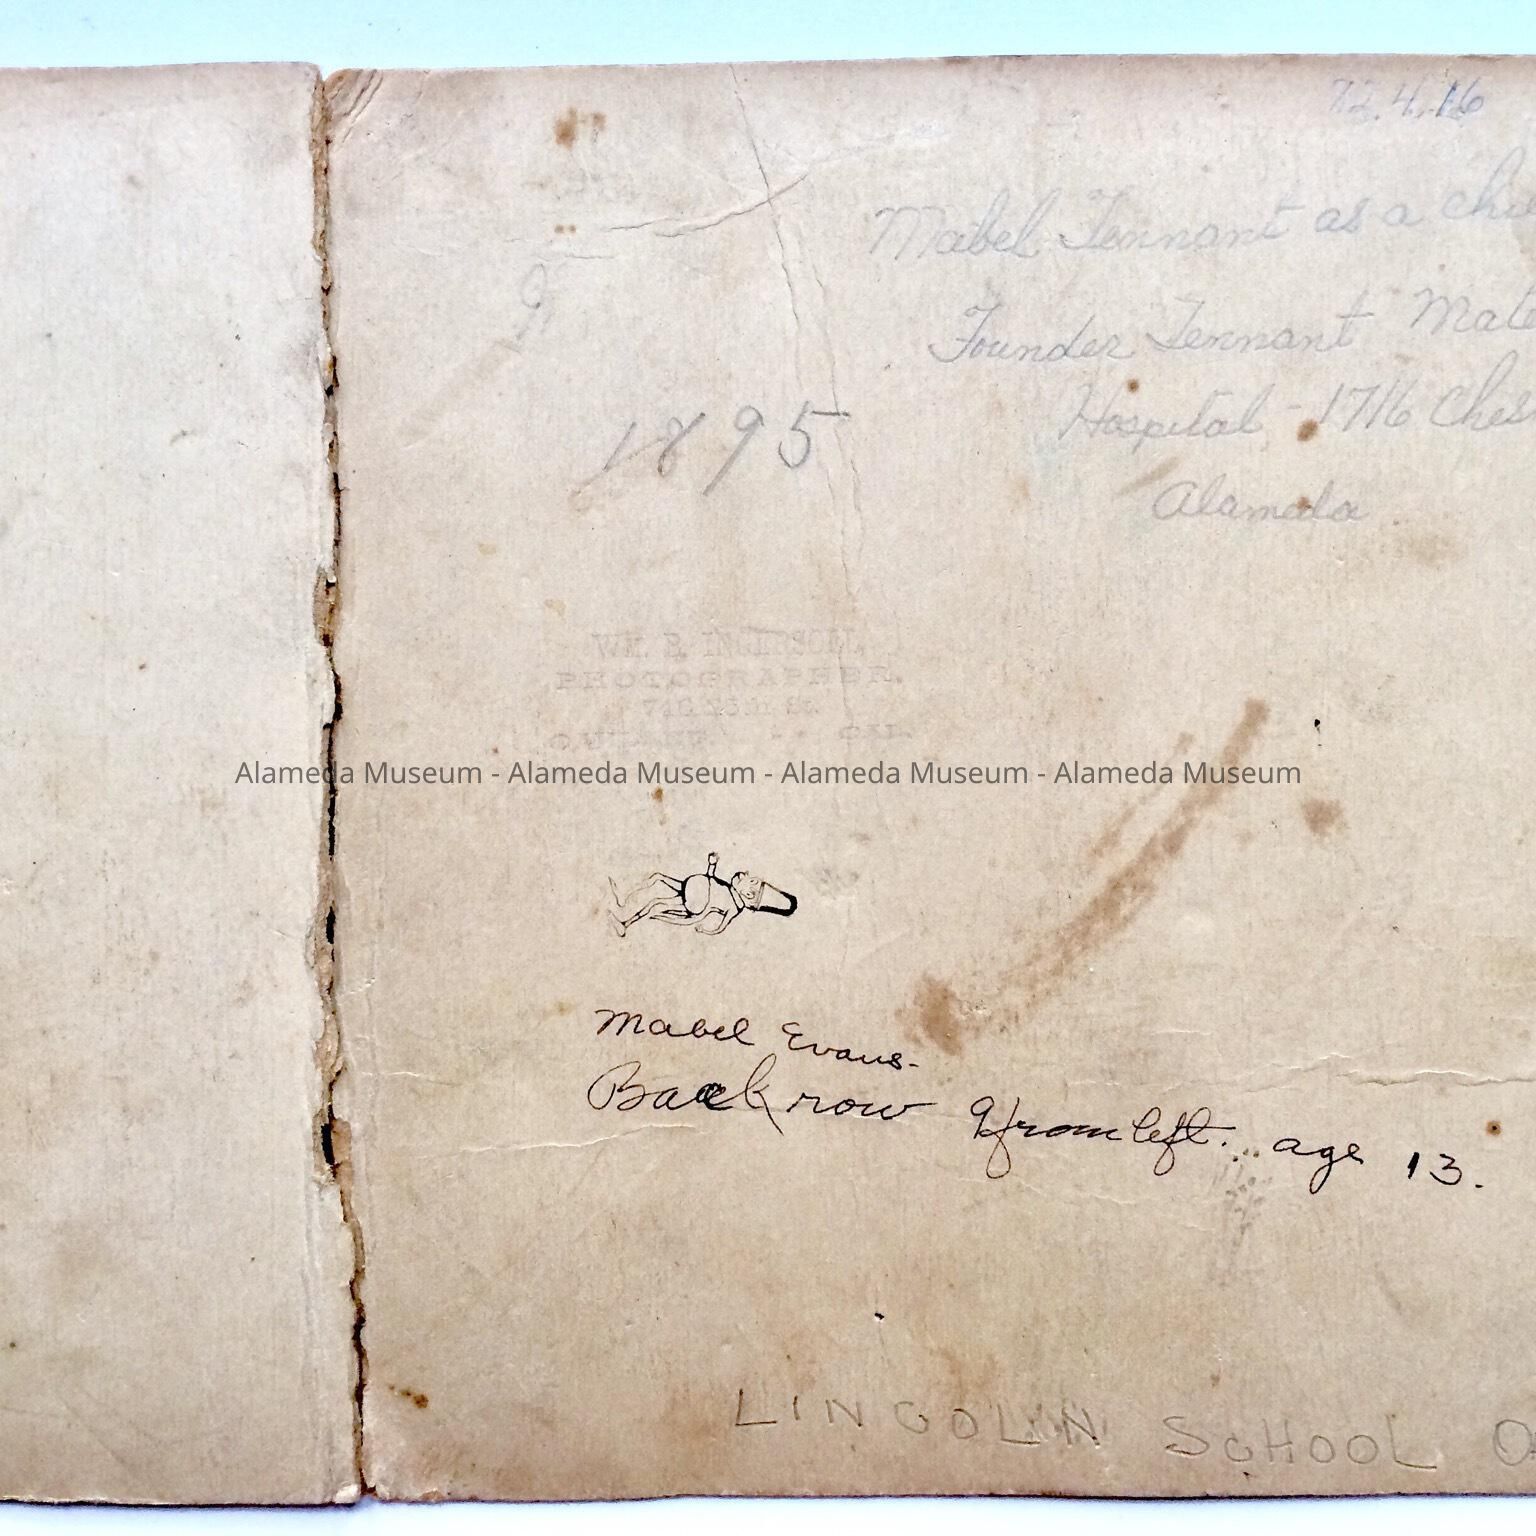 72.4.16
Mabel Tennant as a chi
Founder Tennant Mate
Hospital - 1716 Ches
Alameda
1895
WM. B. INGERSOLL,
PHOTOGRAPHER.
CAL.
Alameda Museum - Alameda Museum - Alameda Museum - Alameda Museum
Mabel Evans.
Back row from left. age 13.
LINCOLN SCHOOL